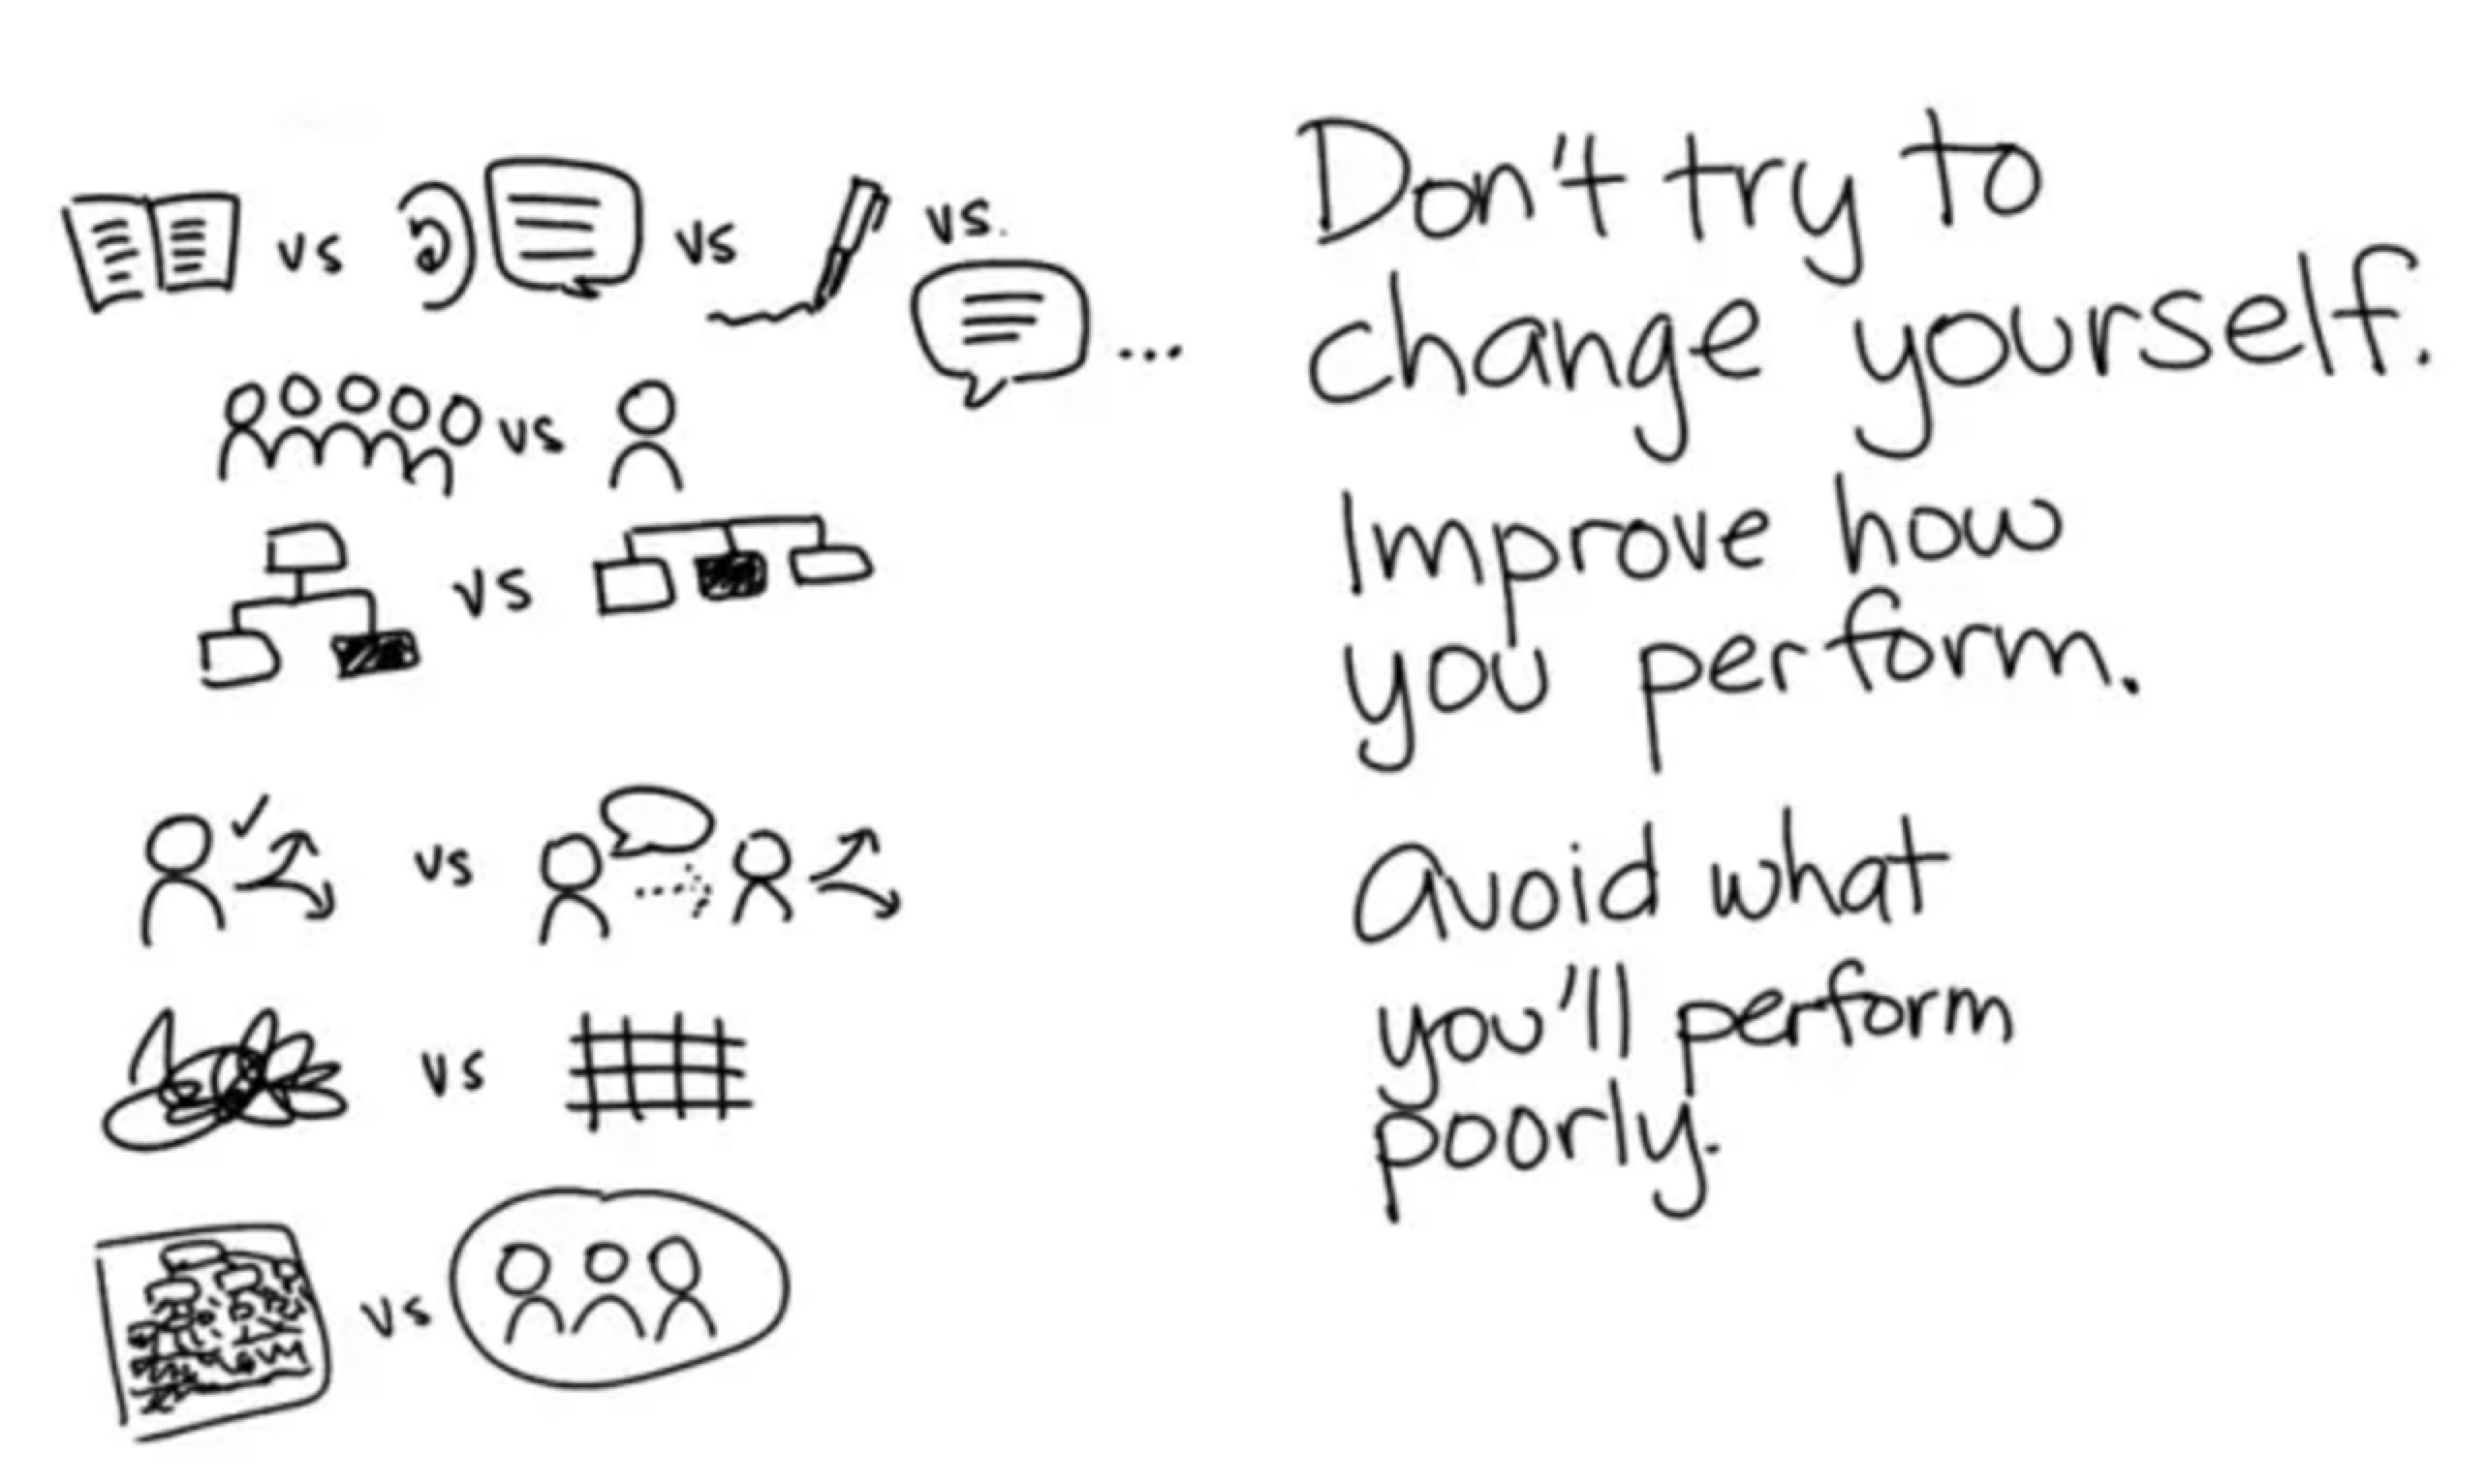 vs
vs
vs.
...
vs
vs
vs
vs
vs
Don't try to
change yourself.
Improve how
you perform.
Avoid what
you'll perform
poorly.